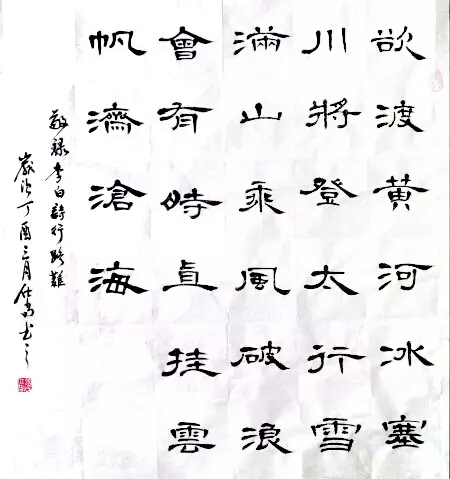 欲渡黄河冰塞
川將登太行雪
滿山乘風破浪
會有時直挂雲
帆濟滄海
敬録李白詩行路難
歲次丁酉三月